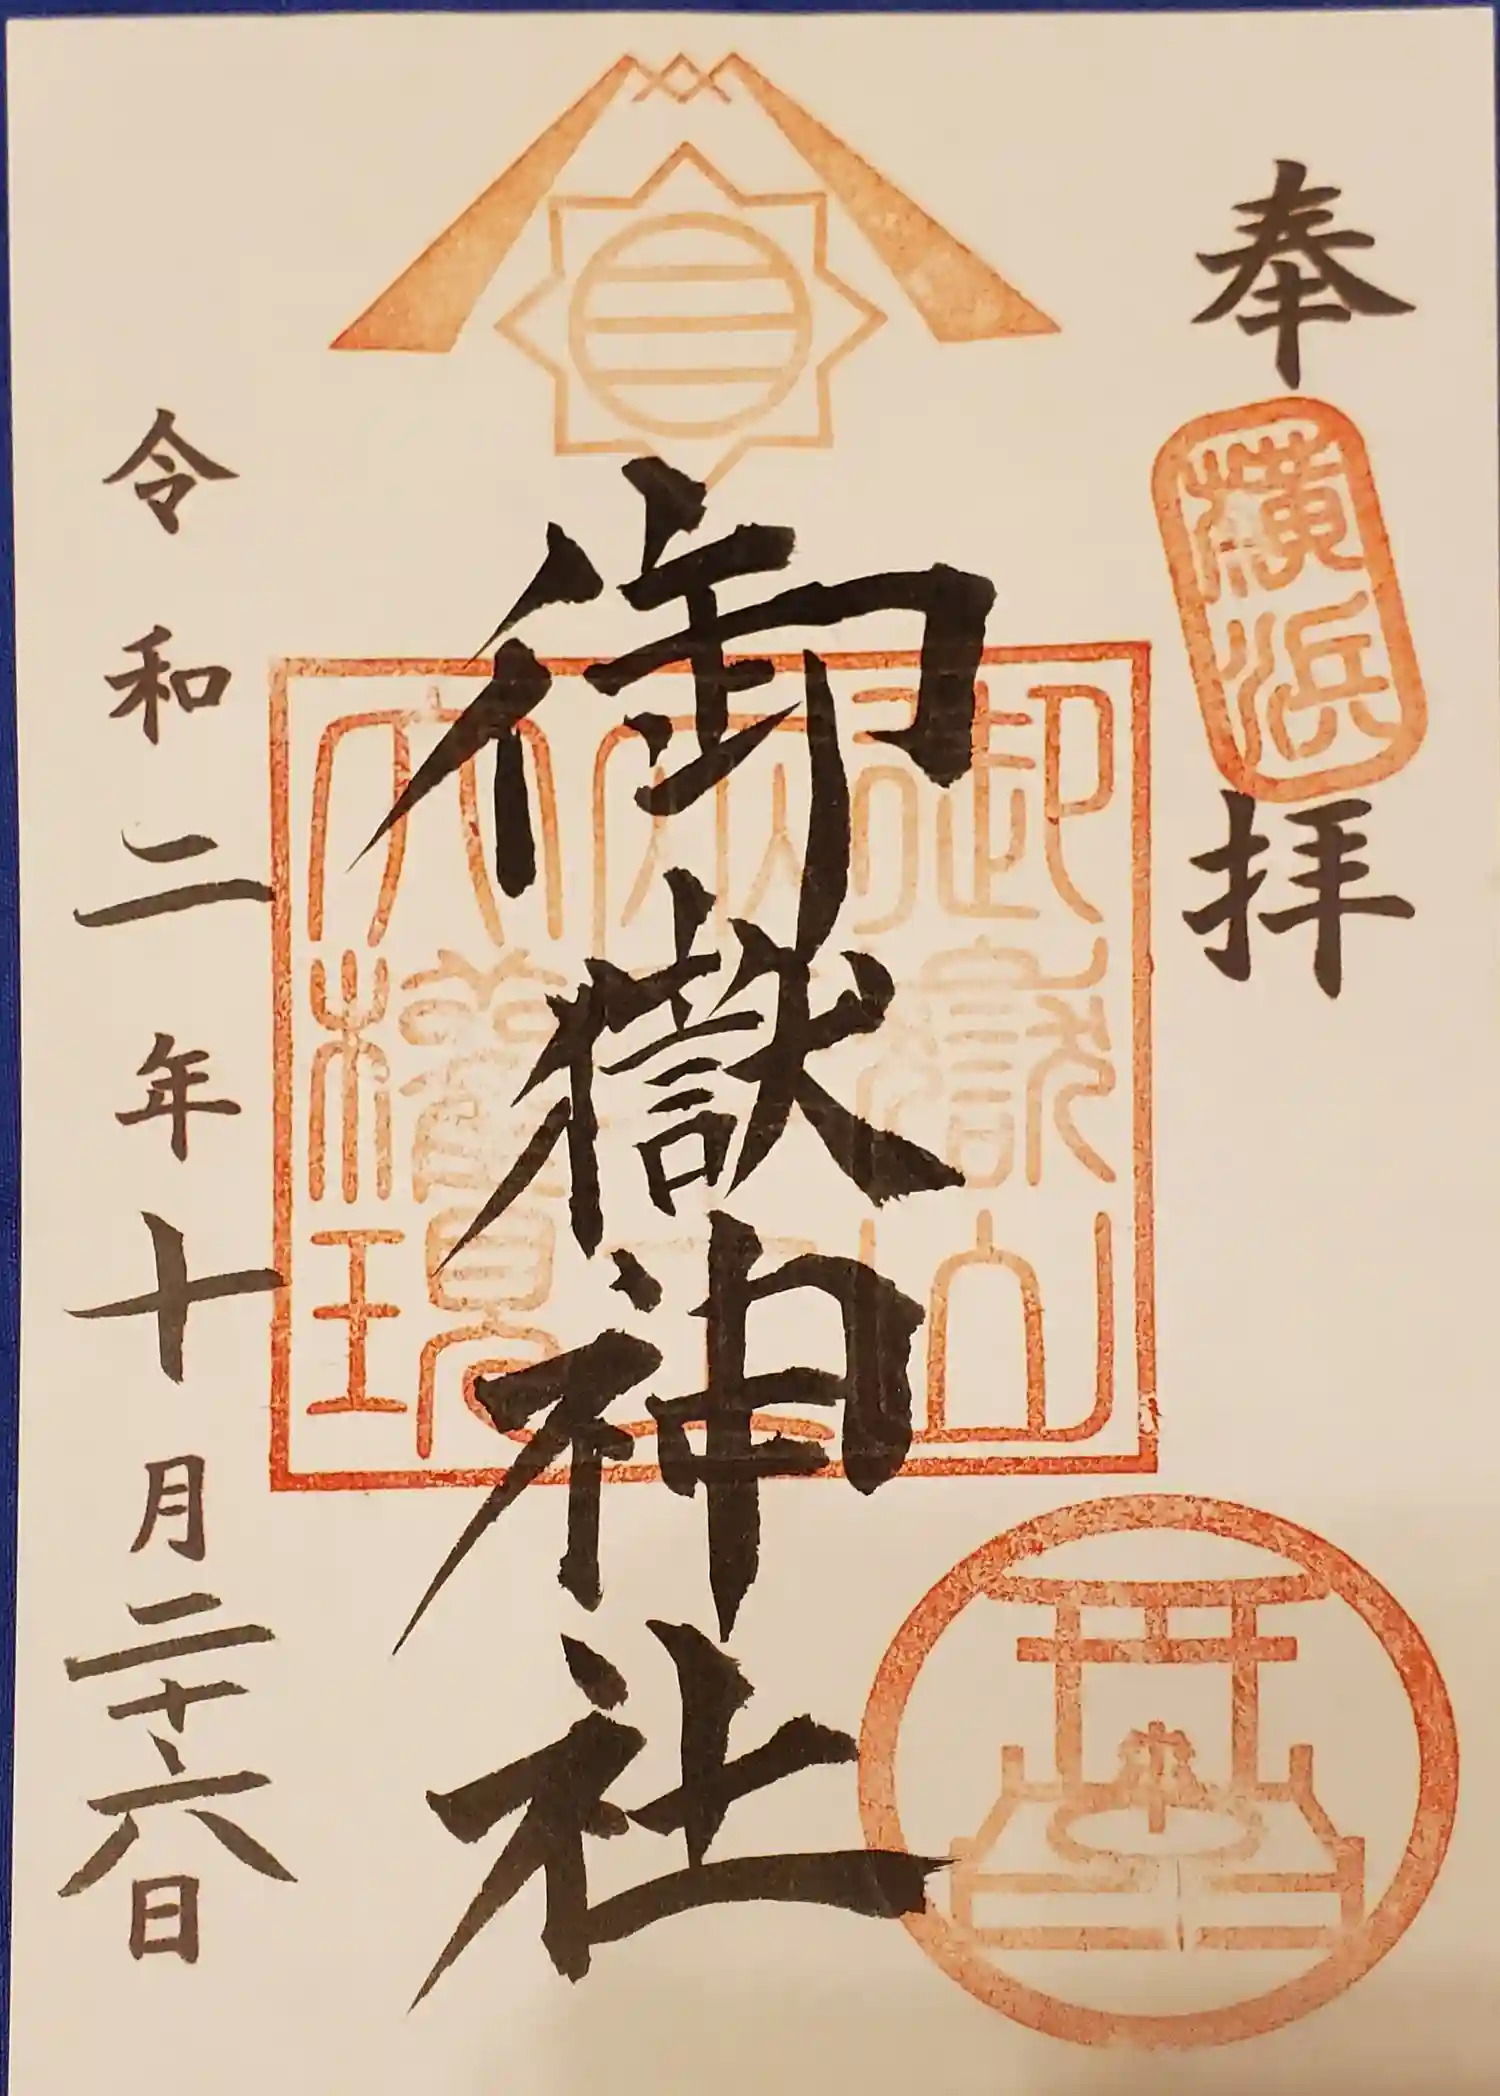 奉拝
横浜
御嶽神社
御嶽山
大権現
令和二年十月二十六日